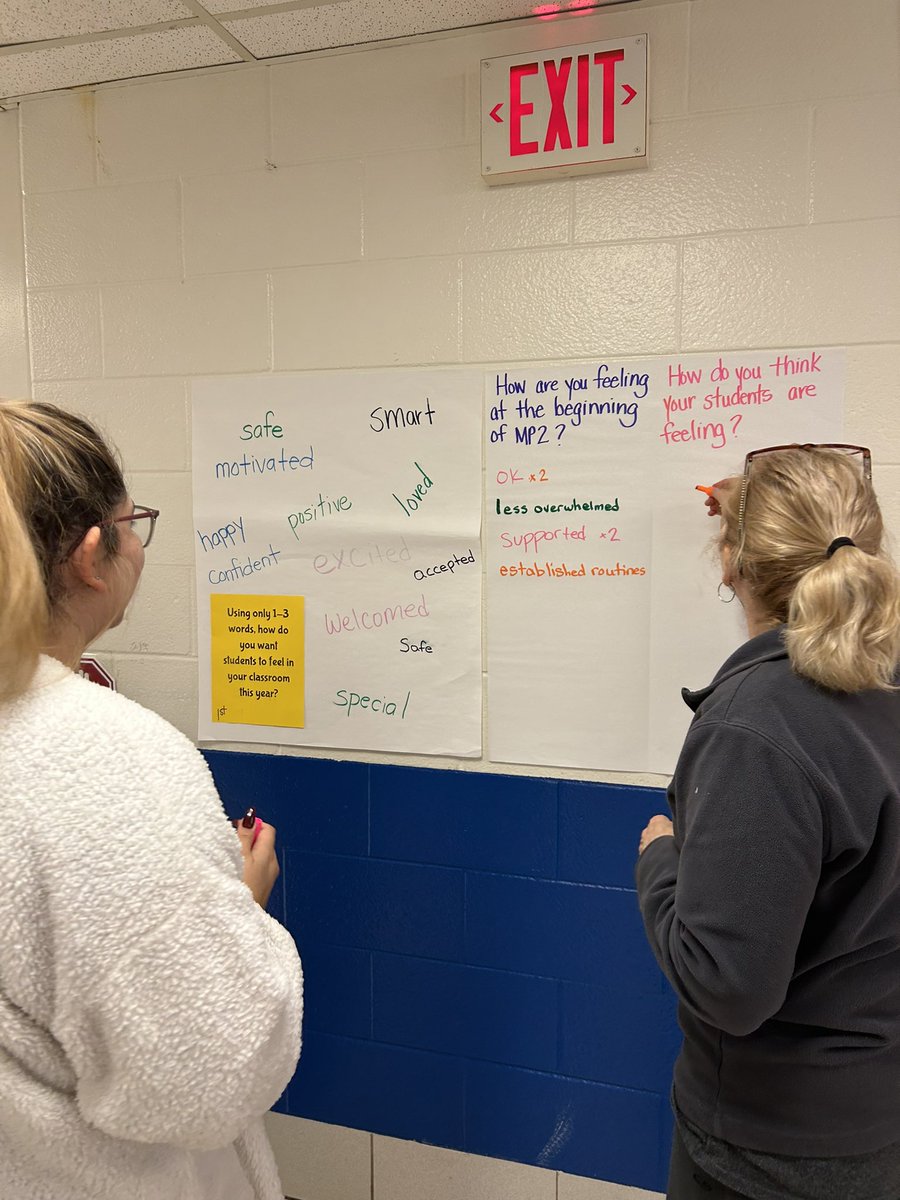 EXIT
safe
smart
motivated
loved
positive
happy
excited
confident
accepted
welcomed
Safe
special
Using only 1-3
words, how do
you want
students to feel in
your classroom
this year?
1st
How are you feeling
at the beginning
of MP2?
OK x2
less overwhelmed
Supported x2
established routines
How do you think
your students are
feeling?